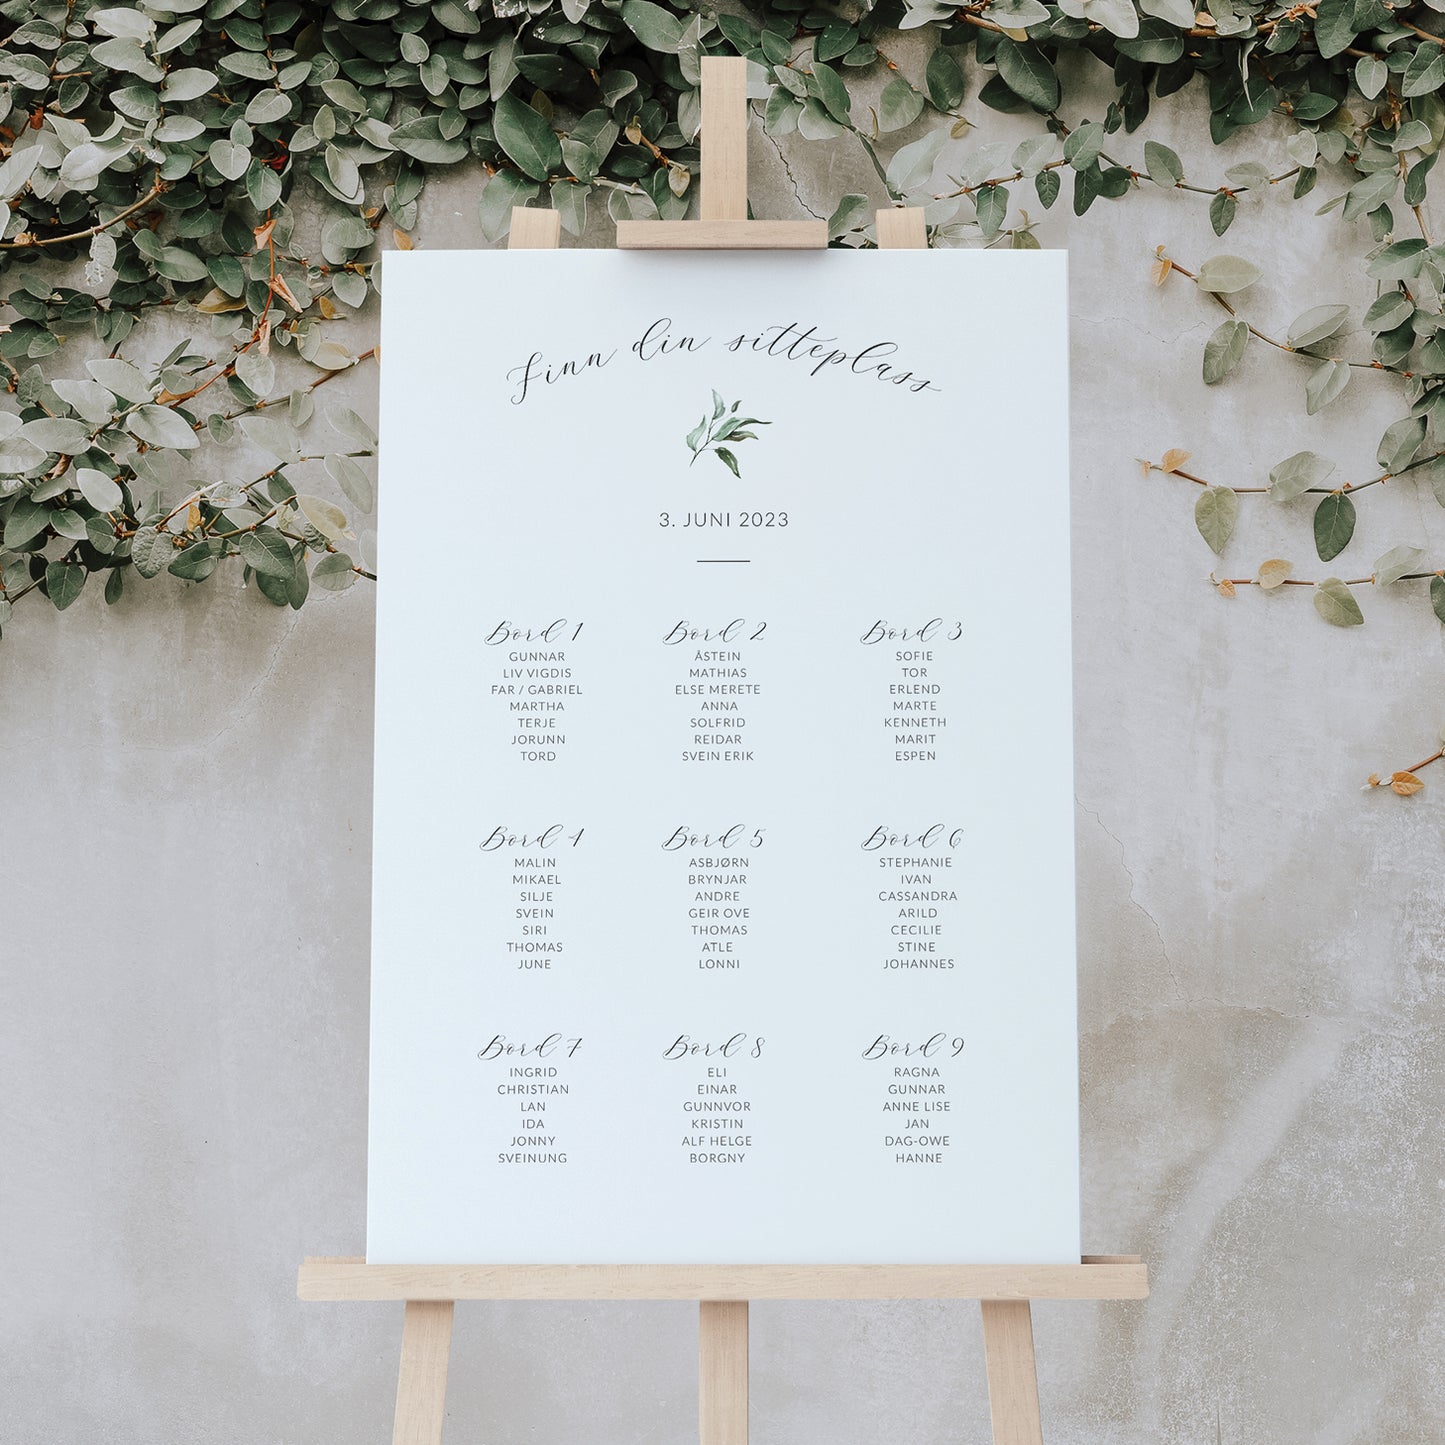 Finn din sitteplass
3. JUNI 2023
Bord 1
GUNNAR
LIV VIGDIS
FAR / GABRIEL
MARTHA
TERJE
JORUNN
TORD
Bord 2
ÅSTEIN
MATHIAS
ELSE MERETE
ANNA
SOLFRID
REIDAR
SVEIN ERIK
Bord 3
SOFIE
TOR
ERLEND
MARTE
KENNETH
MARIT
ESPEN
Bord 4
MALIN
MIKAEL
SILJE
SVEIN
SIRI
THOMAS
JUNE
Bord 5
ASBJØRN
BRYNJAR
ANDRE
GEIR OVE
THOMAS
ATLE
LONNI
Bord 6
STEPHANIE
IVAN
CASSANDRA
ARILD
CECILIE
STINE
JOHANNES
Bord 7
INGRID
CHRISTIAN
LAN
IDA
JONNY
SVEINUNG
Bord 8
ELI
EINAR
GUNNVOR
KRISTIN
ALF HELGE
BORGNY
Bord 9
RAGNA
GUNNAR
ANNE LISE
JAN
DAG-OWE
HANNE